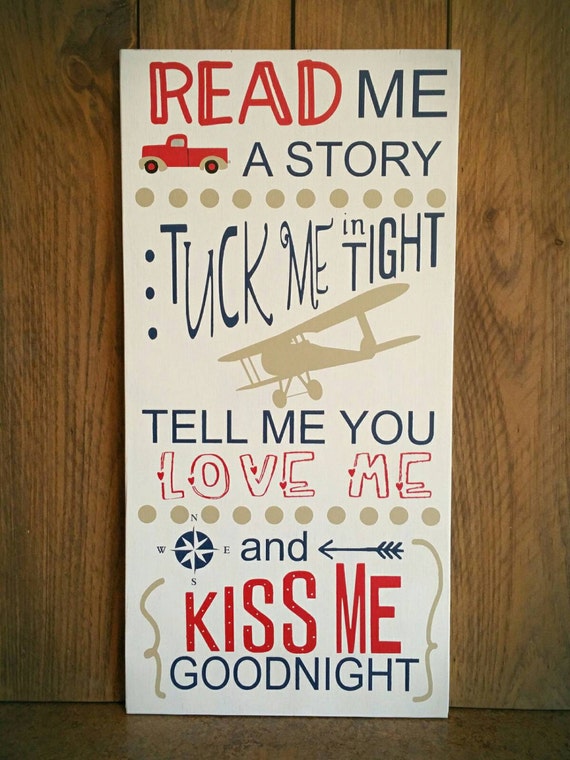 READ ME
A STORY
TUCK ME in TIGHT
TELL ME YOU
LOVE ME
N
W E
S
and
KISS ME
GOODNIGHT